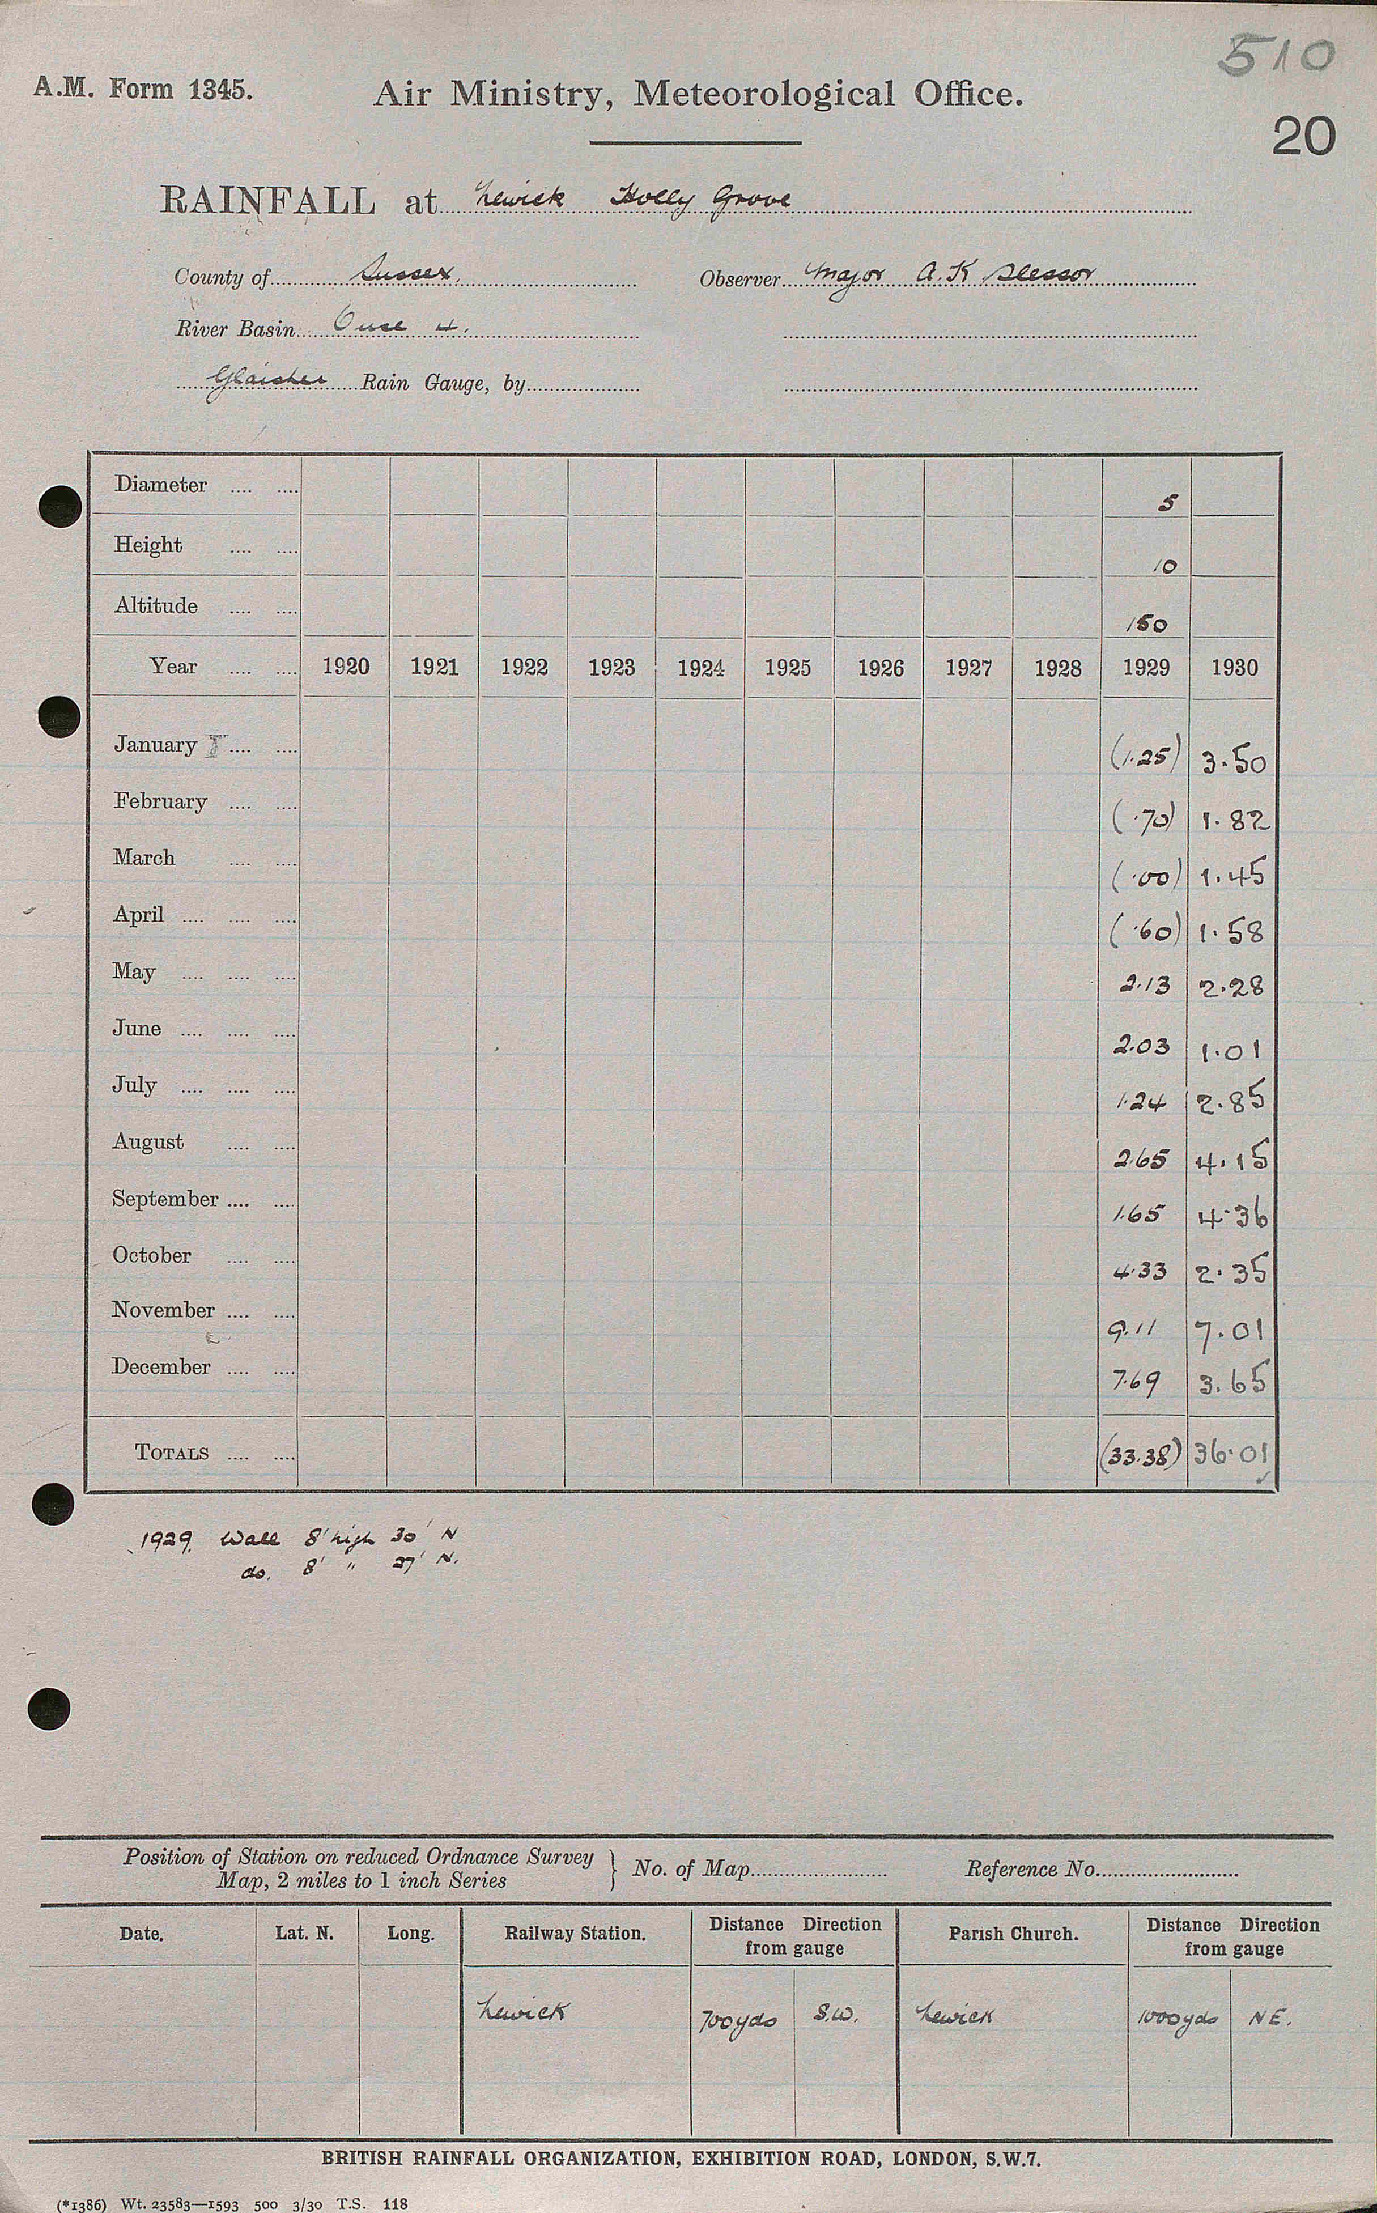 510
A.M. Form 1345.
Air Ministry, Meteorological Office.
20
RAINFALL at Newick Holly Grove
County of Sussex. Observer Major A.K Slessor
River Basin Ouse 4.
Glaisher Rain Gauge, by
Diameter .... .... 5
Height .... .... 10
Altitude .... .... 150
Year .... .... 1920 1921 1922 1923 1924 1925 1926 1927 1928 1929 1930
January .... .... (1.25) 3.50
February .... .... (.70) 1.82
March .... .... (.00) 1.45
April .... .... .... (.60) 1.58
May .... .... .... 2.13 2.28
June .... .... .... 2.03 1.01
July .... .... .... 1.24 2.85
August .... .... 2.65 4.15
September .... .... 1.65 4.36
October .... .... 4.33 2.35
November .... .... 9.11 7.01
December .... .... 7.69 3.65
TOTALS .... .... (33.38) 36.01
1929. Wall 8' high 30' N
do. 8' " 27' N.
Position of Station on reduced Ordnance Survey
Map, 2 miles to 1 inch Series } No. of Map Reference No.
Date. Lat. N. Long. Railway Station. Distance Direction from gauge Parish Church. Distance Direction from gauge
Newick 700yds S.W. Newick 1000yds NE.
BRITISH RAINFALL ORGANIZATION, EXHIBITION ROAD, LONDON, S.W.7.
(*1386) Wt. 23583—1593 500 3/30 T.S. 118